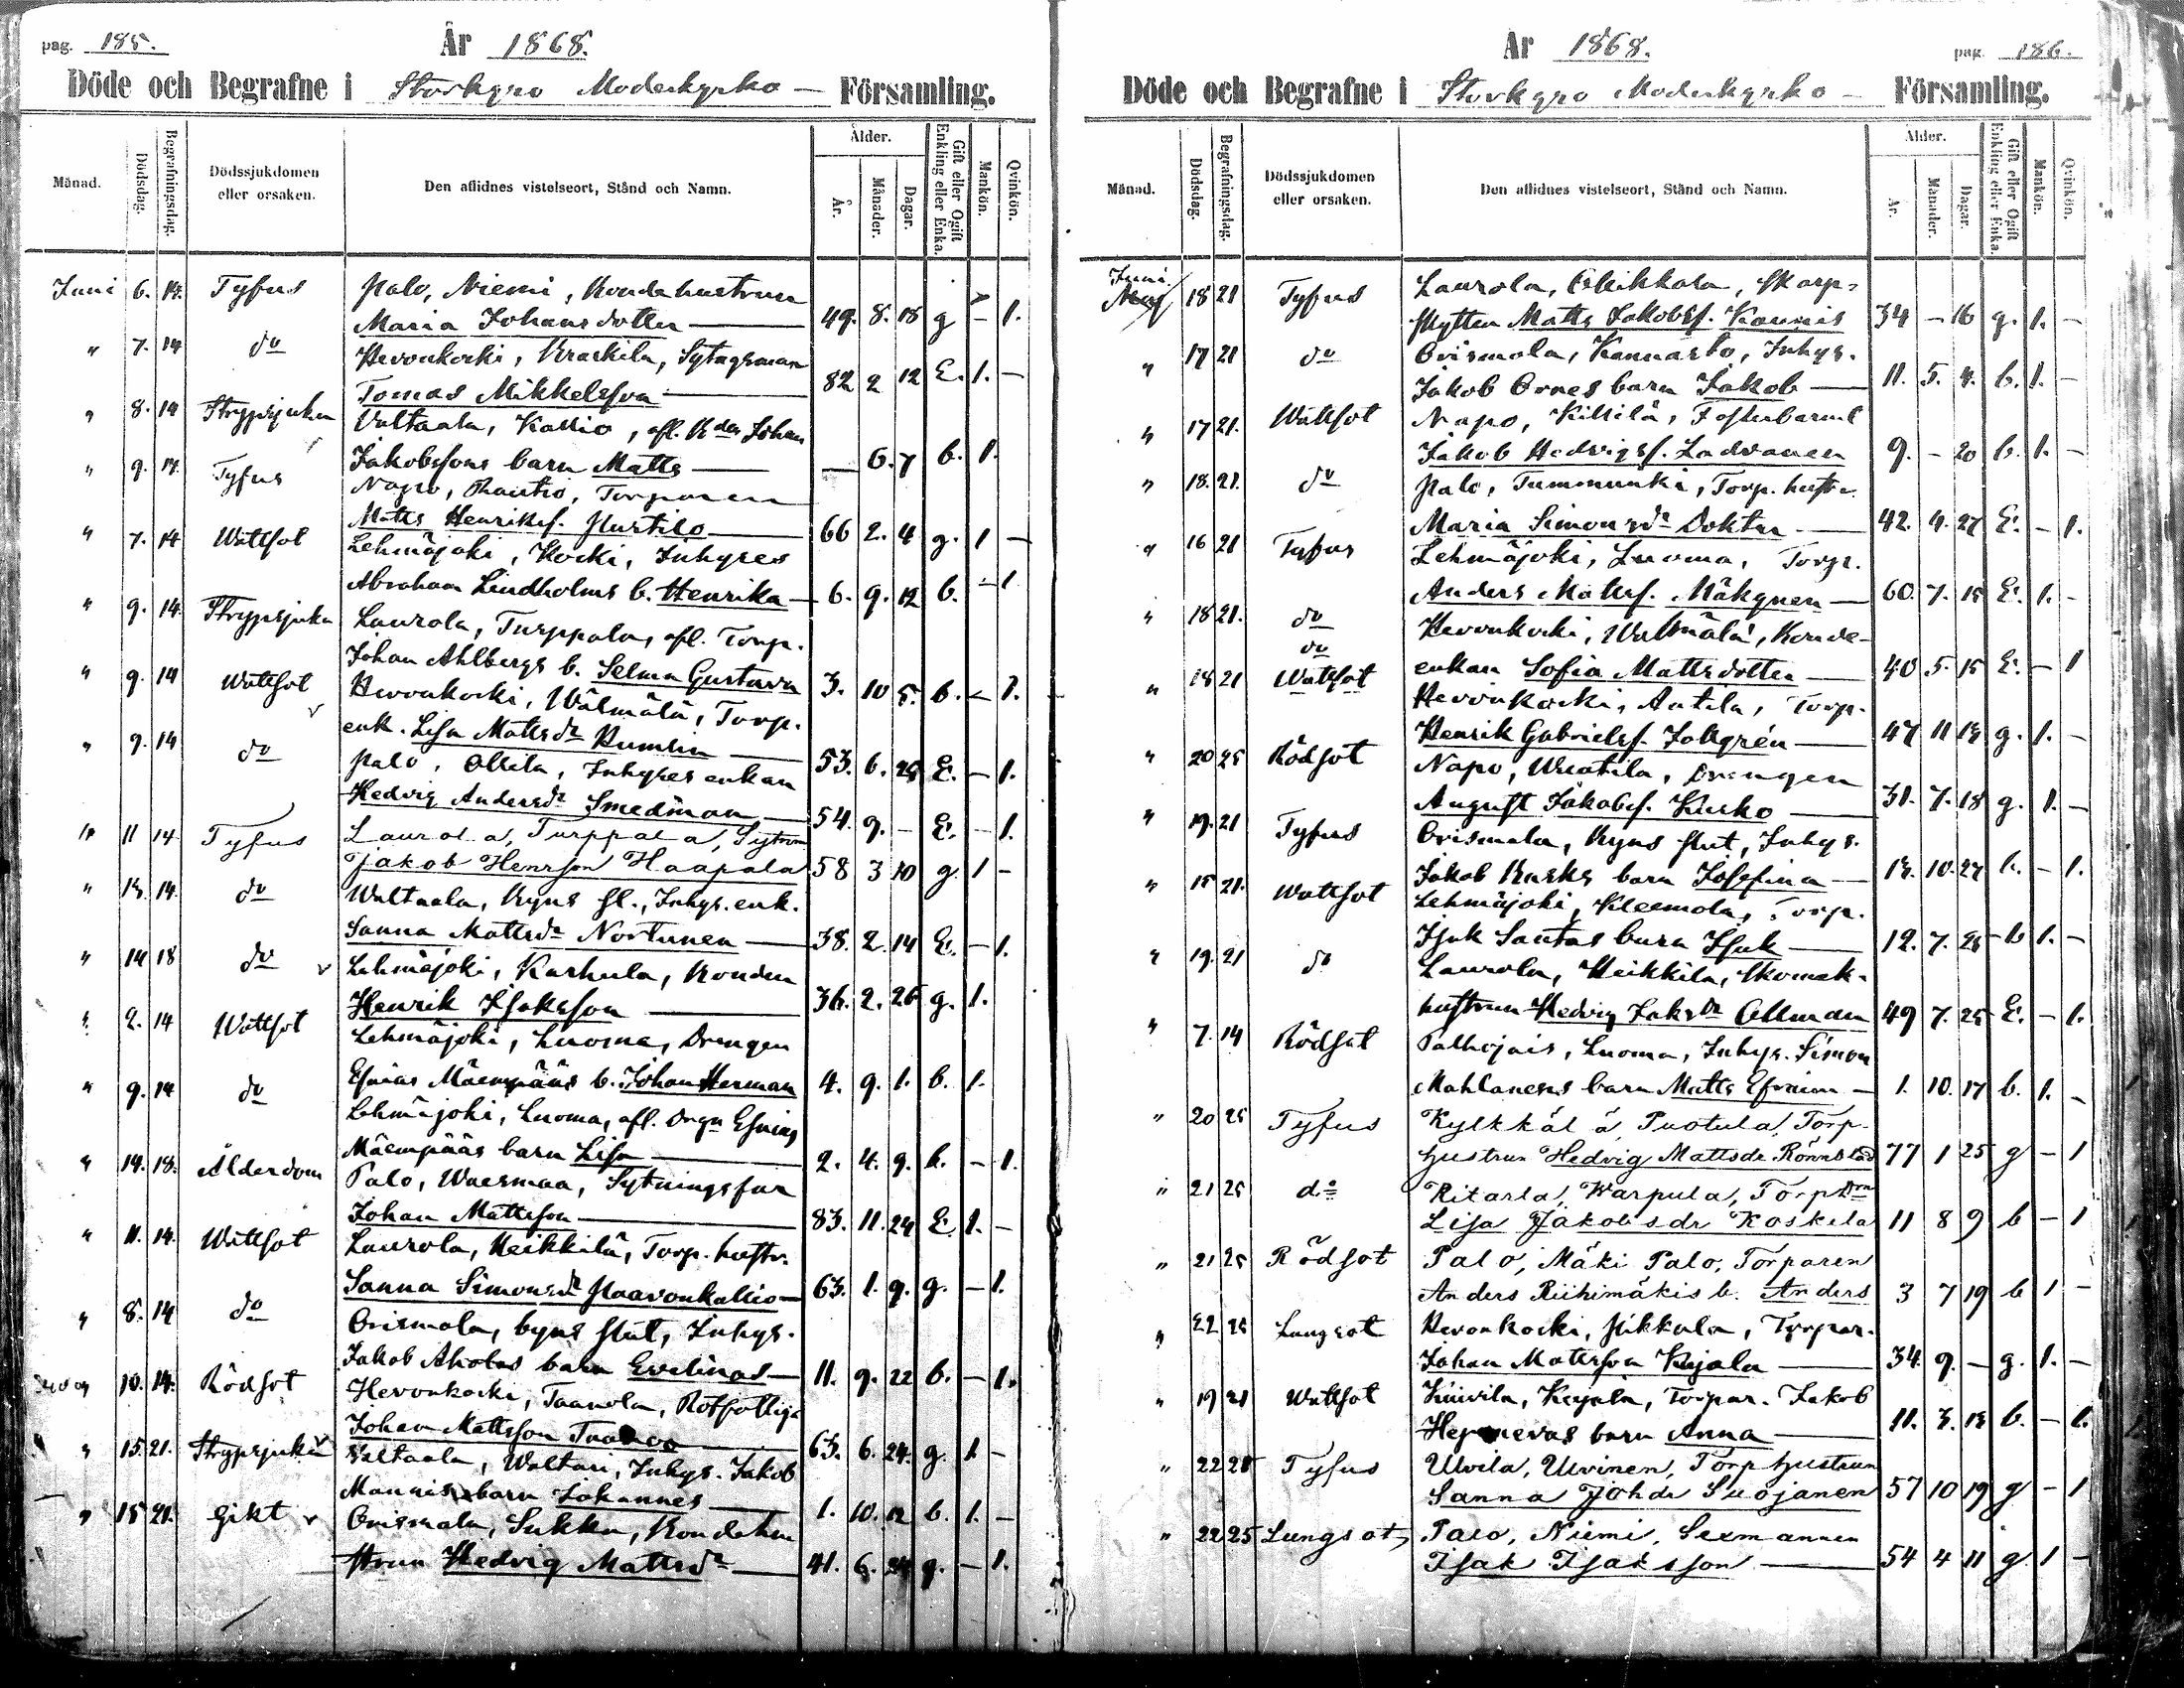 pag. 185.
År 1868.
Döde och Begrafne i Storkyro Moderkyrko – Församling.
Månad. Dödsdag. Begrafningsdag. Dödssjukdomen eller orsaken. Den aflidnes vistelseort, Stånd och Namn. Ålder. År. Månader. Dagar. Gift eller Ogift Enkling eller Enka. Mankön. Qvinkön.
Juni 6. 14. Tyfus Palo, Niemi, Bondehustrun
Maria Johansdotter — 49. 8. 18 g – 1.
" 7. 14 do Hevonkoski, Kraskila, Sytngsman
Tomas Mikkelsson — 82 2 12 E. 1. –
" 8. 14 Strypsjukan Valtaala, Kallio, afl. Bden Johan
Jakobssons barn Matts — – 6. 7 b. 1.
" 9. 14. Tyfus Napo, Rautio, Torparen
Matts Henriksf. Purtilo — 66 2. 4 g. 1 –
" 7. 14 Wattsot Lehmäjoki, Kocki, Inhyses
Abraham Lindholms b. Henrika — 6. 9. 12 b. – 1
" 9. 14. Strypsjukan Laurola, Turppala, afl. Torp.
Johan Ahlbergs b. Selma Gustava 3. 10 5. b. – 1.
" 9. 14 Wattsot Hevonkocki, Wälmälä, Torp.
enk. Lisa Mattsdr Humlin — 53. 6. 25 E. – 1.
" 9. 14 do Palo, Ollila, Inhyses enkan
Hedvig Andersdr Smedman — 54. 9. – E. – 1.
" 11 14 Tyfus Laurola, Turppala, Sytnm
Jakob Henrson Haapala 58 3 10 g. 1 –
" 13. 14. do Waltaala, Byns fl., Inhys. enk.
Sanna Mattsdr Nortunen — 38. 2. 14 E. – 1.
" 14 18 do Lehmäjoki, Karhula, Bonden
Henrik Isaksson — 36. 2. 26 g. 1.
" 2. 14 Wattsot Lehmäjoki, Luoma, Drengen
Esaias Mäenpääs b. Johan Herman 4. 9. 1. b. 1.
" 9. 14 do Lehmäjoki, Luoma, afl. Drgn Esaias
Mäenpääs barn Lisa — 2. 4. 9. b. – 1.
" 14. 18. Ålderdom Palo, Waesmaa, Sytningsfar
Johan Mattsson — 83. 11. 24 E. 1. –
" 11. 14. Wattsot Laurola, Heikkilä, Torp. hustr.
Sanna Simonsdr Paavonkallio — 63. 1. 9. g. – 1.
" 8. 14 do Orismala, byns slut, Inhys.
Jakob Aholas barn Evelina — 11. 9. 22 b. – 1.
" 10. 14. Rödsot Hevonkocki, Taanola, Rotfattiga
Johan Mattsson — 63. 6. 24. g. 1 –
" 15. 21. Strypsjukan Valtaala, Waltari, Inhys. Jakob
Mannis barn Johannes — 1. 10. 12 b. 1. –
" 15 21. Gikt Orismala, Sukka, Bondehu
strun Hedvig Mattsdr — 41. 6. 24 g. – 1.
År 1868.
pag. 186.
Döde och Begrafne i Storkyro Moderkyrko – Församling.
Månad. Dödsdag. Begrafningsdag. Dödssjukdomen eller orsaken. Den aflidnes vistelseort, Stånd och Namn. Ålder. År. Månader. Dagar. Gift eller Ogift Enkling eller Enka. Mankön. Qvinkön.
Juni. 18 21 Tyfus Laurola, Ollikkala, Skarp-
skytten Matts Jakobsf. Kaunis 34 – 16 g. 1. –
" 17 21 do Orismala, Kannasto, Inhys.
Jakob Ornes barn Jakob — 11. 5. 4. b. 1. –
" 17 21. Wattsot Napo, Killilä, Fosterbarnet
Jakob Hedvigsf. Ladvanen 9. – 20 b. 1. –
" 18. 21. do Palo, Tummunki, Torp. hustr.
Maria Simonsdr Doktar — 42. 4. 27 E. – 1.
" 16 21 Tyfus Lehmäjoki, Luoma, Torp.
Anders Mattsf. Mäkynen — 60. 7. 15 E. 1. –
" 18 21. do Hevonkocki, Walmälä, Bonde-
enkan Sofia Mattsdotter — 40 5. 15 E. – 1
" 18 21 do Wattsot Hevonkocki, Antila, Torp.
Henrik Gabrielsf. Zahgrén — 47 11 13 g. 1. –
" 20 25 Rödsot Napo, Uuatila, Drengen
August Jakobsf. Kusko — 31. 7. 18 g. 1. –
" 19. 21 Tyfus Orismala, Byns slut, Inhys.
Jakob Kusks barn Josefina — 13. 10. 27 b. – 1.
" 15 21. Wattsot Lehmäjoki, Kleemola, Torp.
Isak Santas barn Isak — 12. 7. 25 b 1. –
" 19. 21 do Laurola, Heikkila, Skomak.
hustrun Hedvig Jaksdr Allmdn 49 7. 25 E. – 1.
" 7. 14 Rödsot Palhojais, Luoma, Inhys. Simon
Mahlanens barn Matts Efraim — 1. 10. 17 b. 1. –
" 20 25 Tyfus Kylkkälä, Puotula, Torp.
hustrun Hedvig Mattsdr Rönnblad 77 1 25 g – 1
" 21 25 do Ritarla, Warpula, Torpdrn
Lisa Jakobsdr Koskela 11 8 9 b – 1
" 21 25 Rödsot Palo, Mäki Palo, Torparen
Anders Riihimäkis b. Anders 3 7 19 b 1 –
" 22 25 Lungsot Hevonkocki, Pikkala, Torpar.
Johan Mattsson Kujala — 34. 9. – g. 1. –
" 19 21 Wattsot Kuivila, Kujala, Torpar. Jakob
barn Anna — 11. 3. 13 b. – 1.
" 22 25 Tyfus Ulvila, Ulvinen, Torp hustrun
Sanna Johdr Suojanen 57 10 19 g – 1
" 22 25 Lungsot Palo, Niemi, Sexmannen
Isak Isaksson — 54 4 11 g 1 –